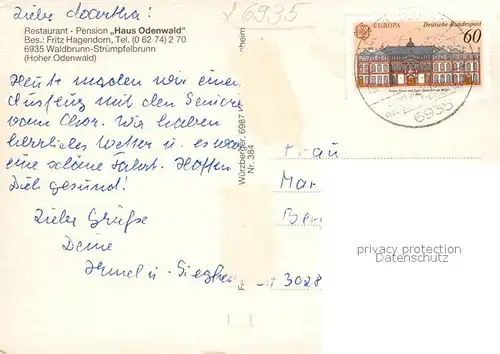 Liebe Martha!
6935
Restaurant - Pension „Haus Odenwald"
Bes.: Fritz Hagendorn, Tel. (0 62 74) 2 70
6935 Waldbrunn-Strümpfelbrunn
(Hoher Odenwald)
Heute machen wir einen
Ausflug mit den Senioren
vom Chor. Wir haben
herrliches Wetter u. es war
eine schöne Fahrt. Hoffen
Dich gesund!
Liebe Grüße
Deine
Würzberger, 6987
Nr. 384
EUROPA Deutsche Bundespost
60
6935
Frau
Mar
Ber
3028
privacy protection
Datenschutz